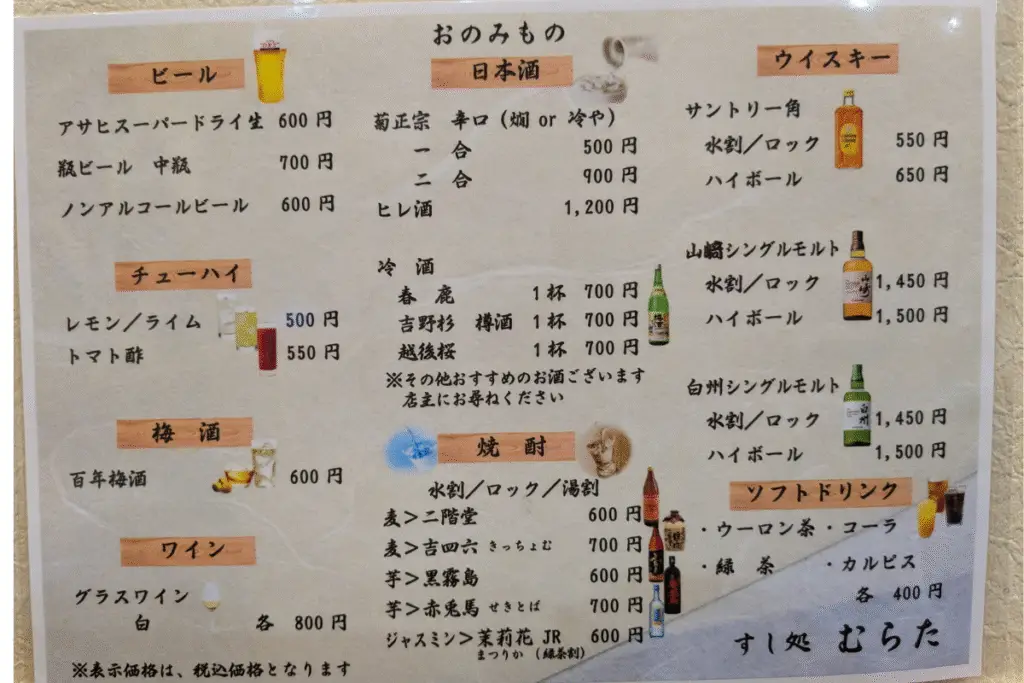 おのみもの
ビール
アサヒスーパードライ生 600 円
瓶ビール 中瓶 700 円
ノンアルコールビール 600 円
チューハイ
レモン／ライム 500 円
トマト酢 550 円
梅 酒
百年梅酒 600 円
ワイン
グラスワイン
白 各 800 円
※表示価格は、税込価格となります
日本酒
菊正宗 辛口（燗 or 冷や）
一 合 500 円
二 合 900 円
ヒレ酒 1,200 円
冷 酒
春 鹿 1杯 700 円
吉野杉 樽酒 1杯 700 円
越後桜 1杯 700 円
※その他おすすめのお酒ございます
店主にお尋ねください
焼 酎
水割／ロック／湯割
麦＞二階堂 600 円
麦＞吉四六 きっちょむ 700 円
芋＞黒霧島 600 円
芋＞赤兎馬 せきとば 700 円
ジャスミン＞茉莉花 JR 600 円
まつりか （緑茶割）
ウイスキー
サントリー角
水割／ロック 550 円
ハイボール 650 円
山崎シングルモルト
水割／ロック 1,450 円
ハイボール 1,500 円
白州シングルモルト
水割／ロック 1,450 円
ハイボール 1,500 円
ソフトドリンク
・ウーロン茶 ・コーラ
・緑 茶 ・カルピス
各 400 円
すし処 むらた